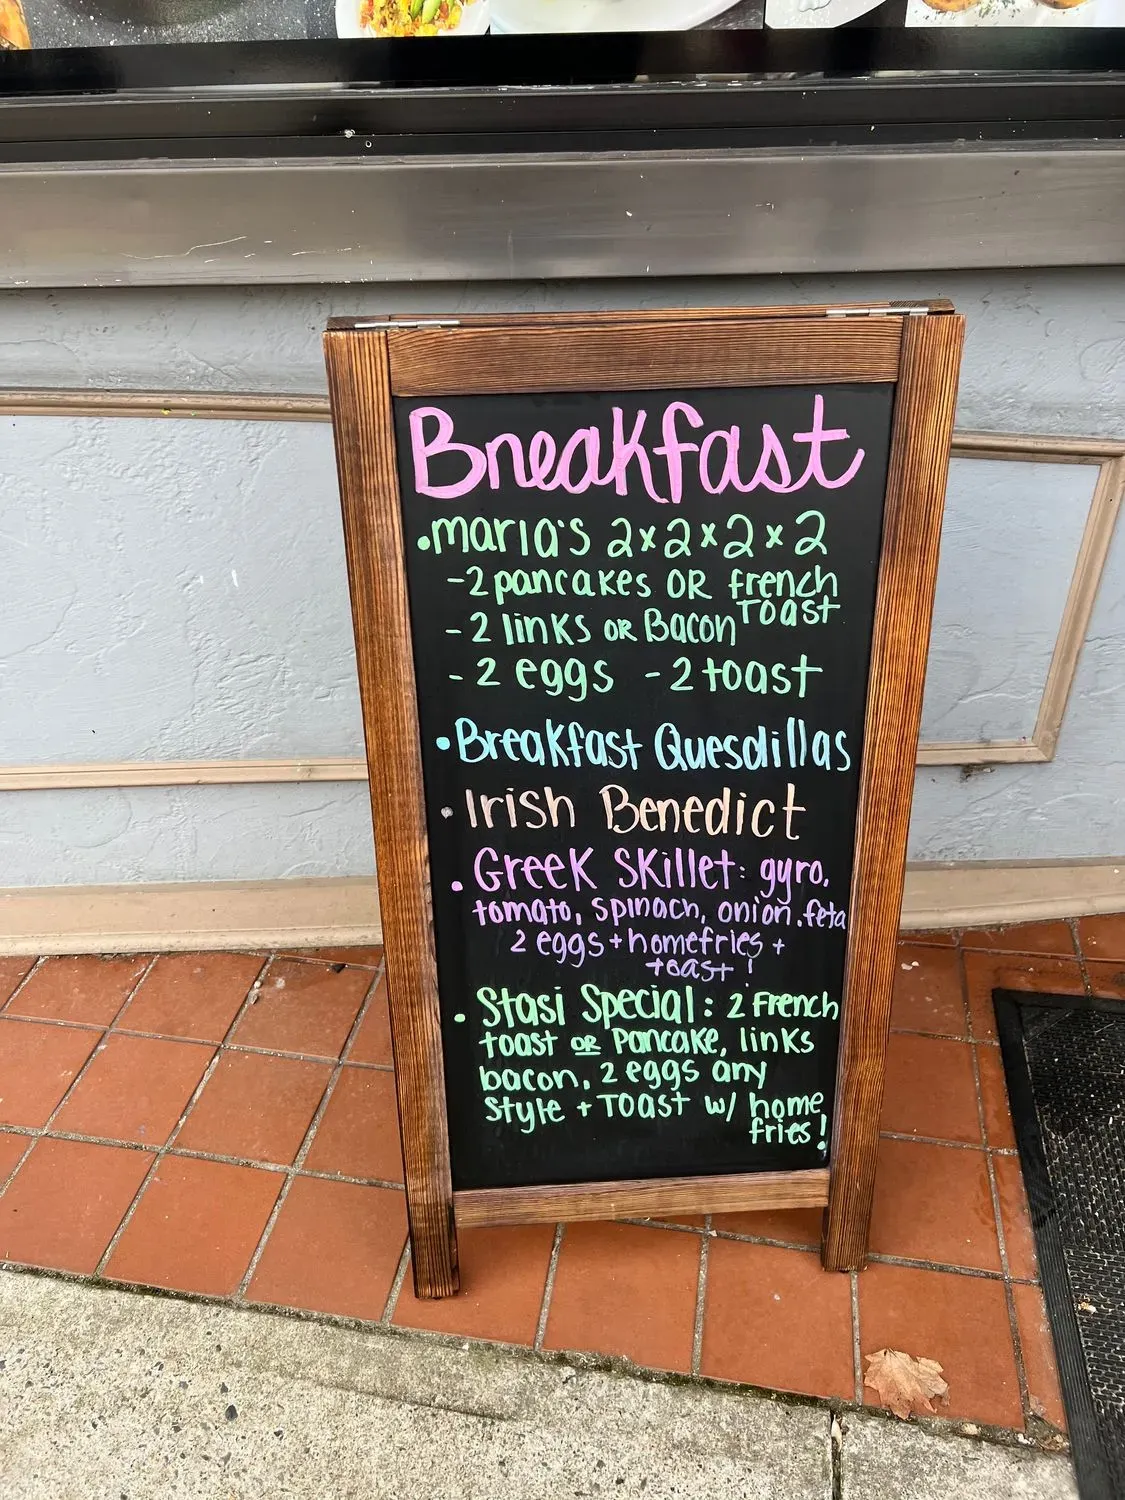 Breakfast
• maria's 2x2x2x2
- 2 pancakes OR french
toast
- 2 links OR Bacon
- 2 eggs - 2 toast
• Breakfast Quesdillas
• Irish Benedict
• Greek Skillet: gyro,
tomato, spinach, onion, feta
2 eggs + homefries +
toast!
• Stasi Special: 2 French
toast OR Pancake, links
bacon, 2 eggs any
style + TOAST w/ home
fries!